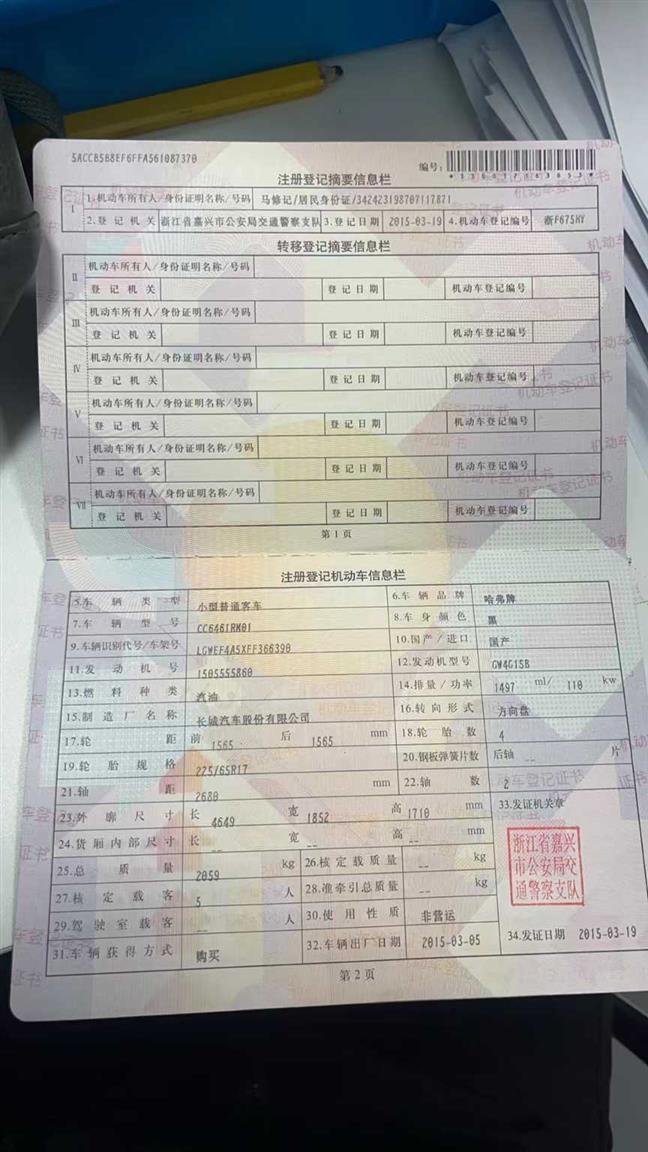 5ACCB5B8EF6FFA561087370
编号:
注册登记摘要信息栏
I 1.机动车所有人/身份证明名称/号码 马修记/居民身份证/342423198707117871
2.登记机关 浙江省嘉兴市公安局交通警察支队 3.登记日期 2015-03-19 4.机动车登记编号 浙F675HY
转移登记摘要信息栏
II 机动车所有人/身份证明名称/号码
登记机关 登记日期 机动车登记编号
III 机动车所有人/身份证明名称/号码
登记机关 登记日期 机动车登记编号
IV 机动车所有人/身份证明名称/号码
登记机关 登记日期 机动车登记编号
V 机动车所有人/身份证明名称/号码
登记机关 登记日期 机动车登记编号
VI 机动车所有人/身份证明名称/号码
登记机关 登记日期 机动车登记编号
VII 机动车所有人/身份证明名称/号码
登记机关 登记日期 机动车登记编号
第1页
注册登记机动车信息栏
5.车辆类型 小型普通客车 6.车辆品牌 哈弗牌
7.车辆型号 CC6461RM01 8.车身颜色 黑
9.车辆识别代号/车架号 LGWEF4A5XFF366390 10.国产/进口 国产
11.发动机号 1505555860 12.发动机型号 GW4G15B
13.燃料种类 汽油 14.排量/功率 1497 ml/ 110 kw
15.制造厂名称 长城汽车股份有限公司 16.转向形式 方向盘
17.轮距 前 1565 后 1565 mm 18.轮胎数 4
19.轮胎规格 225/65R17 20.钢板弹簧片数 后轴 -- 片
21.轴距 2680 mm 22.轴数 2
23.外廓尺寸 长 4649 宽 1852 高 1710 mm 33.发证机关章
24.货厢内部尺寸 长 -- 宽 -- 高 -- mm
浙江省嘉兴
市公安局交
通警察支队
25.总质量 2059 kg 26.核定载质量 -- kg
27.核定载客 5 人 28.准牵引总质量 -- kg
29.驾驶室载客 -- 人 30.使用性质 非营运
31.车辆获得方式 购买 32.车辆出厂日期 2015-03-05 34.发证日期 2015-03-19
第2页